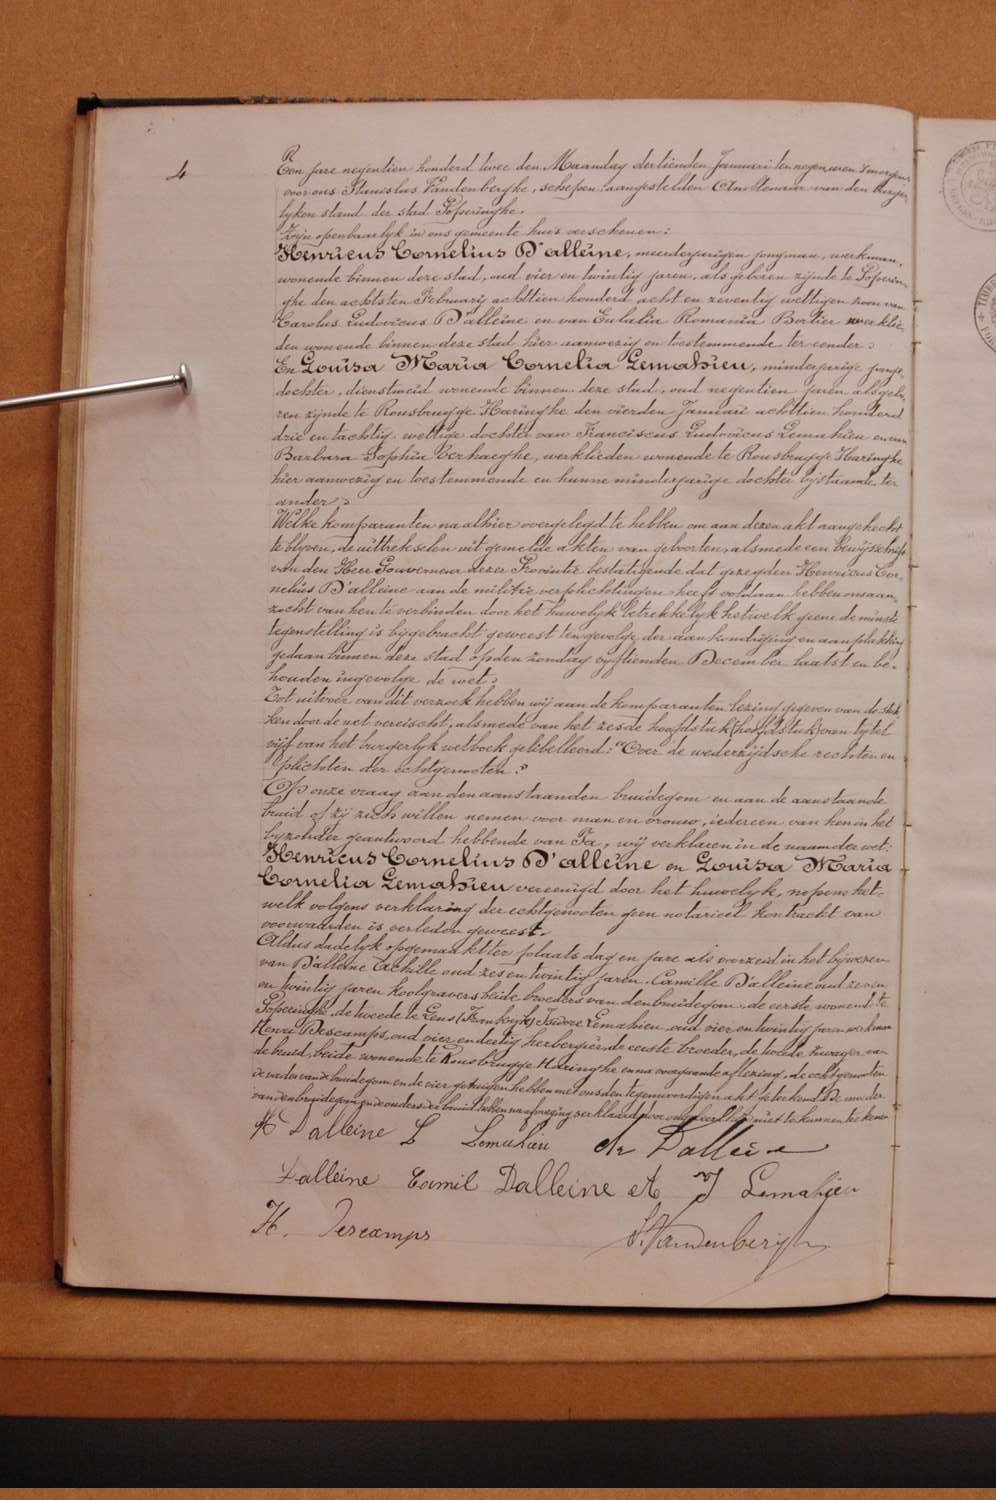 4
Een jare negentien honderd twee den Maandag dertienden Januari ten negen uren 's morgens
voor ons Stanislas Vandenberghe, schepen aangestelden Amstenaar van den burger
lyken stand der stad Poperinghe.
Zijn openbaarlyk in ons gemeente huis verschenen:
Henricus Cornelius D'alleine, meerderjarigen jongman, werkman,
wonende binnen deze stad, oud vier en twintig jaren, als geboren zijnde te Poperin-
ghe den achtsten Februarij achttien honderd acht en zeventig wettigen zoon van
Carolus Ludovicus D'alleine en van Eulalia Romania Bertier werklie-
den wonende binnen deze stad hier aanwezig en toestemmende ter eender.
En Louisa Maria Cornelia Lemahieu, minderjarige jonge
dochter, dienstmeid wonende binnen deze stad, oud negentien jaren als gebo-
ren zijnde te Rousbrugge Haringhe den vierden Januari achttien honderd
drie en tachtig wettige dochter van Franciscus Ludovicus Lemahieu en van
Barbara Sophia Verhaeghe, werklieden wonende te Rousbrugge Haringhe
hier aanwezig en toestemmende en hunne minderjarige dochter bijstaande ter
ander.
Welke komparanten na alhier overgelegd te hebben om aan dezen akt aangehecht
te blyven, de uittrekselen uit gemelde akten van geboorten, alsmede een bewijsschrift
van den Heer Gouverneur dezer Provintie bestatigende dat gezegden Henricus Cor-
nelius D'alleine aan de militie verplichtingen heeft voldaan hebben ons aan-
zocht van hen te verbinden door het huwelyk betrekkelyk hetwelk geene de minste
tegenstelling is bijgebracht geweest ten gevolge der aankondiging en aanplakking
gedaan binnen deze stad op den zondag vyftienden December laatst en be-
houden ingevolge de wet.
Tot uitvoer van dit verzoek hebben wij aan de komparanten lezing gegeven van de stuk-
ken door de wet vereischt, alsmede van het zesde hoofdstuk (hoofdstuk) van tytel
vijf van het burgerlyk wetboek gelibelleerd: "Over de wederzijdsche rechten en
plichten der echtgenooten."
Op onze vraag aan den aanstaanden bruidegom en aan de aanstaande
bruid of zij zich willen nemen voor man en vrouw, iedereen van hen in het
byzonder geantwoord hebbende van Ja, wij verklaren in de naam der wet:
Henricus Cornelius D'alleine en Louisa Maria
Cornelia Lemahieu vereenigd door het huwelyk, nopens het-
welk volgens verklaring der echtgenooten geen notarieel kontracht van
voorwaarden is verleden geweest.
Aldus dadelyk opgemaakt ter plaats dag en jare als voorzeid in het bywezen
van D'alleine Achille oud zes en twintig jaren, Camille D'alleine oud zeven
en twintig jaren koolgravers beide broeders van den bruidegom, de eerste wonend te
Poperinghe, de tweede te Lens (Frankrijk) Isidore Lemahieu oud vier en twintig jaren werkman
Henri Descamps, oud vier en dertig herbergier, de eerste broeder, de tweede zwager van
de bruid, beide wonende te Rousbrugge Haringhe en na voorgaande aflezing, de echtgenooten
de vader van de bruidegom en de vier getuigen hebben met ons den tegenwoordigen akt geteekend. De moeder
van den bruidegom en de ouders der bruid hebben na afvraging verklaard door ongeleerdheid niet te kunnen teekenen
H Dalleine L Lemahieu ch Dalleine
Dalleine Camil Dalleine A J Lemahieu
H. Descamps S. Vandenberghe